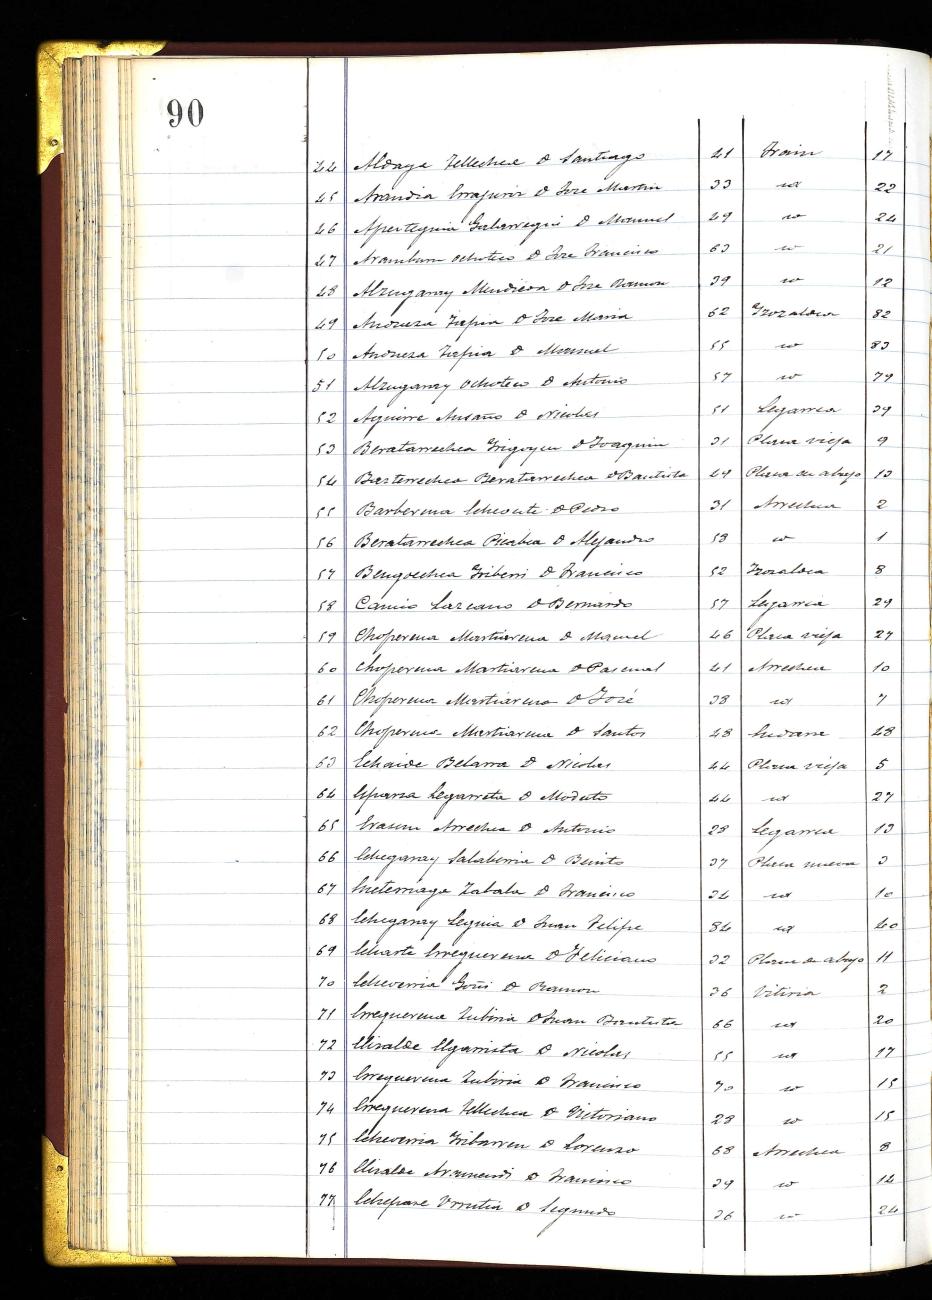 90
44 Aldaya Tellechea D Santiago 41 Frain 17
45 Arandia Errazuriz D Jose Martin 33 id 22
46 Aperteguia Galarregui D Manuel 49 id 24
47 Aramburu Ochoteco D Jose Francisco 63 id 21
48 Alzugaray Mendieta D Jose Ramon 39 id 12
49 Andueza Tapia D Jose Maria 62 82
50 Andueza Tapia D Manuel 55 id 83
51 Alzugaray Ochoteco D Antonio 57 id 79
52 Aguirre D Nicolas 51 Legarrea 39
53 Beratarrechea Yrigoyen D Joaquin 31 Plaza vieja 9
54 Basterrechea Beratarrechea D Bautista 49 Plaza de abajo 13
55 Barberena D Pedro 31 Arrechea 2
56 Beratarrechea Picabea D Alejandro 53 id 1
57 Bengoechea Yriberri D Francisco 52 8
58 Camio Lazcano D Bernardo 57 Legarrea 29
59 Choperena Martiarena D Manuel 46 Plaza vieja 27
60 Choperena Martiarena D Pascual 41 Arrechea 10
61 Choperena Martiarena D José 38 id 7
62 Choperena Martiarena D Santos 48 48
63 Echaide Belarra D Nicolas 44 Plaza vieja 5
64 Esparza Legarreta D Modesto 44 id 27
65 Erasun Arrechea D Antonio 28 Legarrea 13
66 Echegaray Salaberria D Benito 37 Plaza nueva 3
67 Zabala D Francisco 34 id 10
68 Echegaray Leguia D Juan Felipe 34 id 40
69 Echarte Erreguerena D Feliciano 32 Plaza de abajo 11
70 Echeverria Goñi D Ramon 36 Vitiria 2
71 Erreguerena Zubiria D Juan Bautista 66 id 20
72 Elizalde Elgarrista D Nicolas 55 id 17
73 Erreguerena Zubiria D Francisco 70 id 15
74 Erreguerena Tellechea D Victoriano 28 id 15
75 Echeverria Yribarren D Lorenzo 68 Arrechea 8
76 Elizalde D Francisco 39 id 14
77 Echepare Urrutia D Segundo 36 id 24